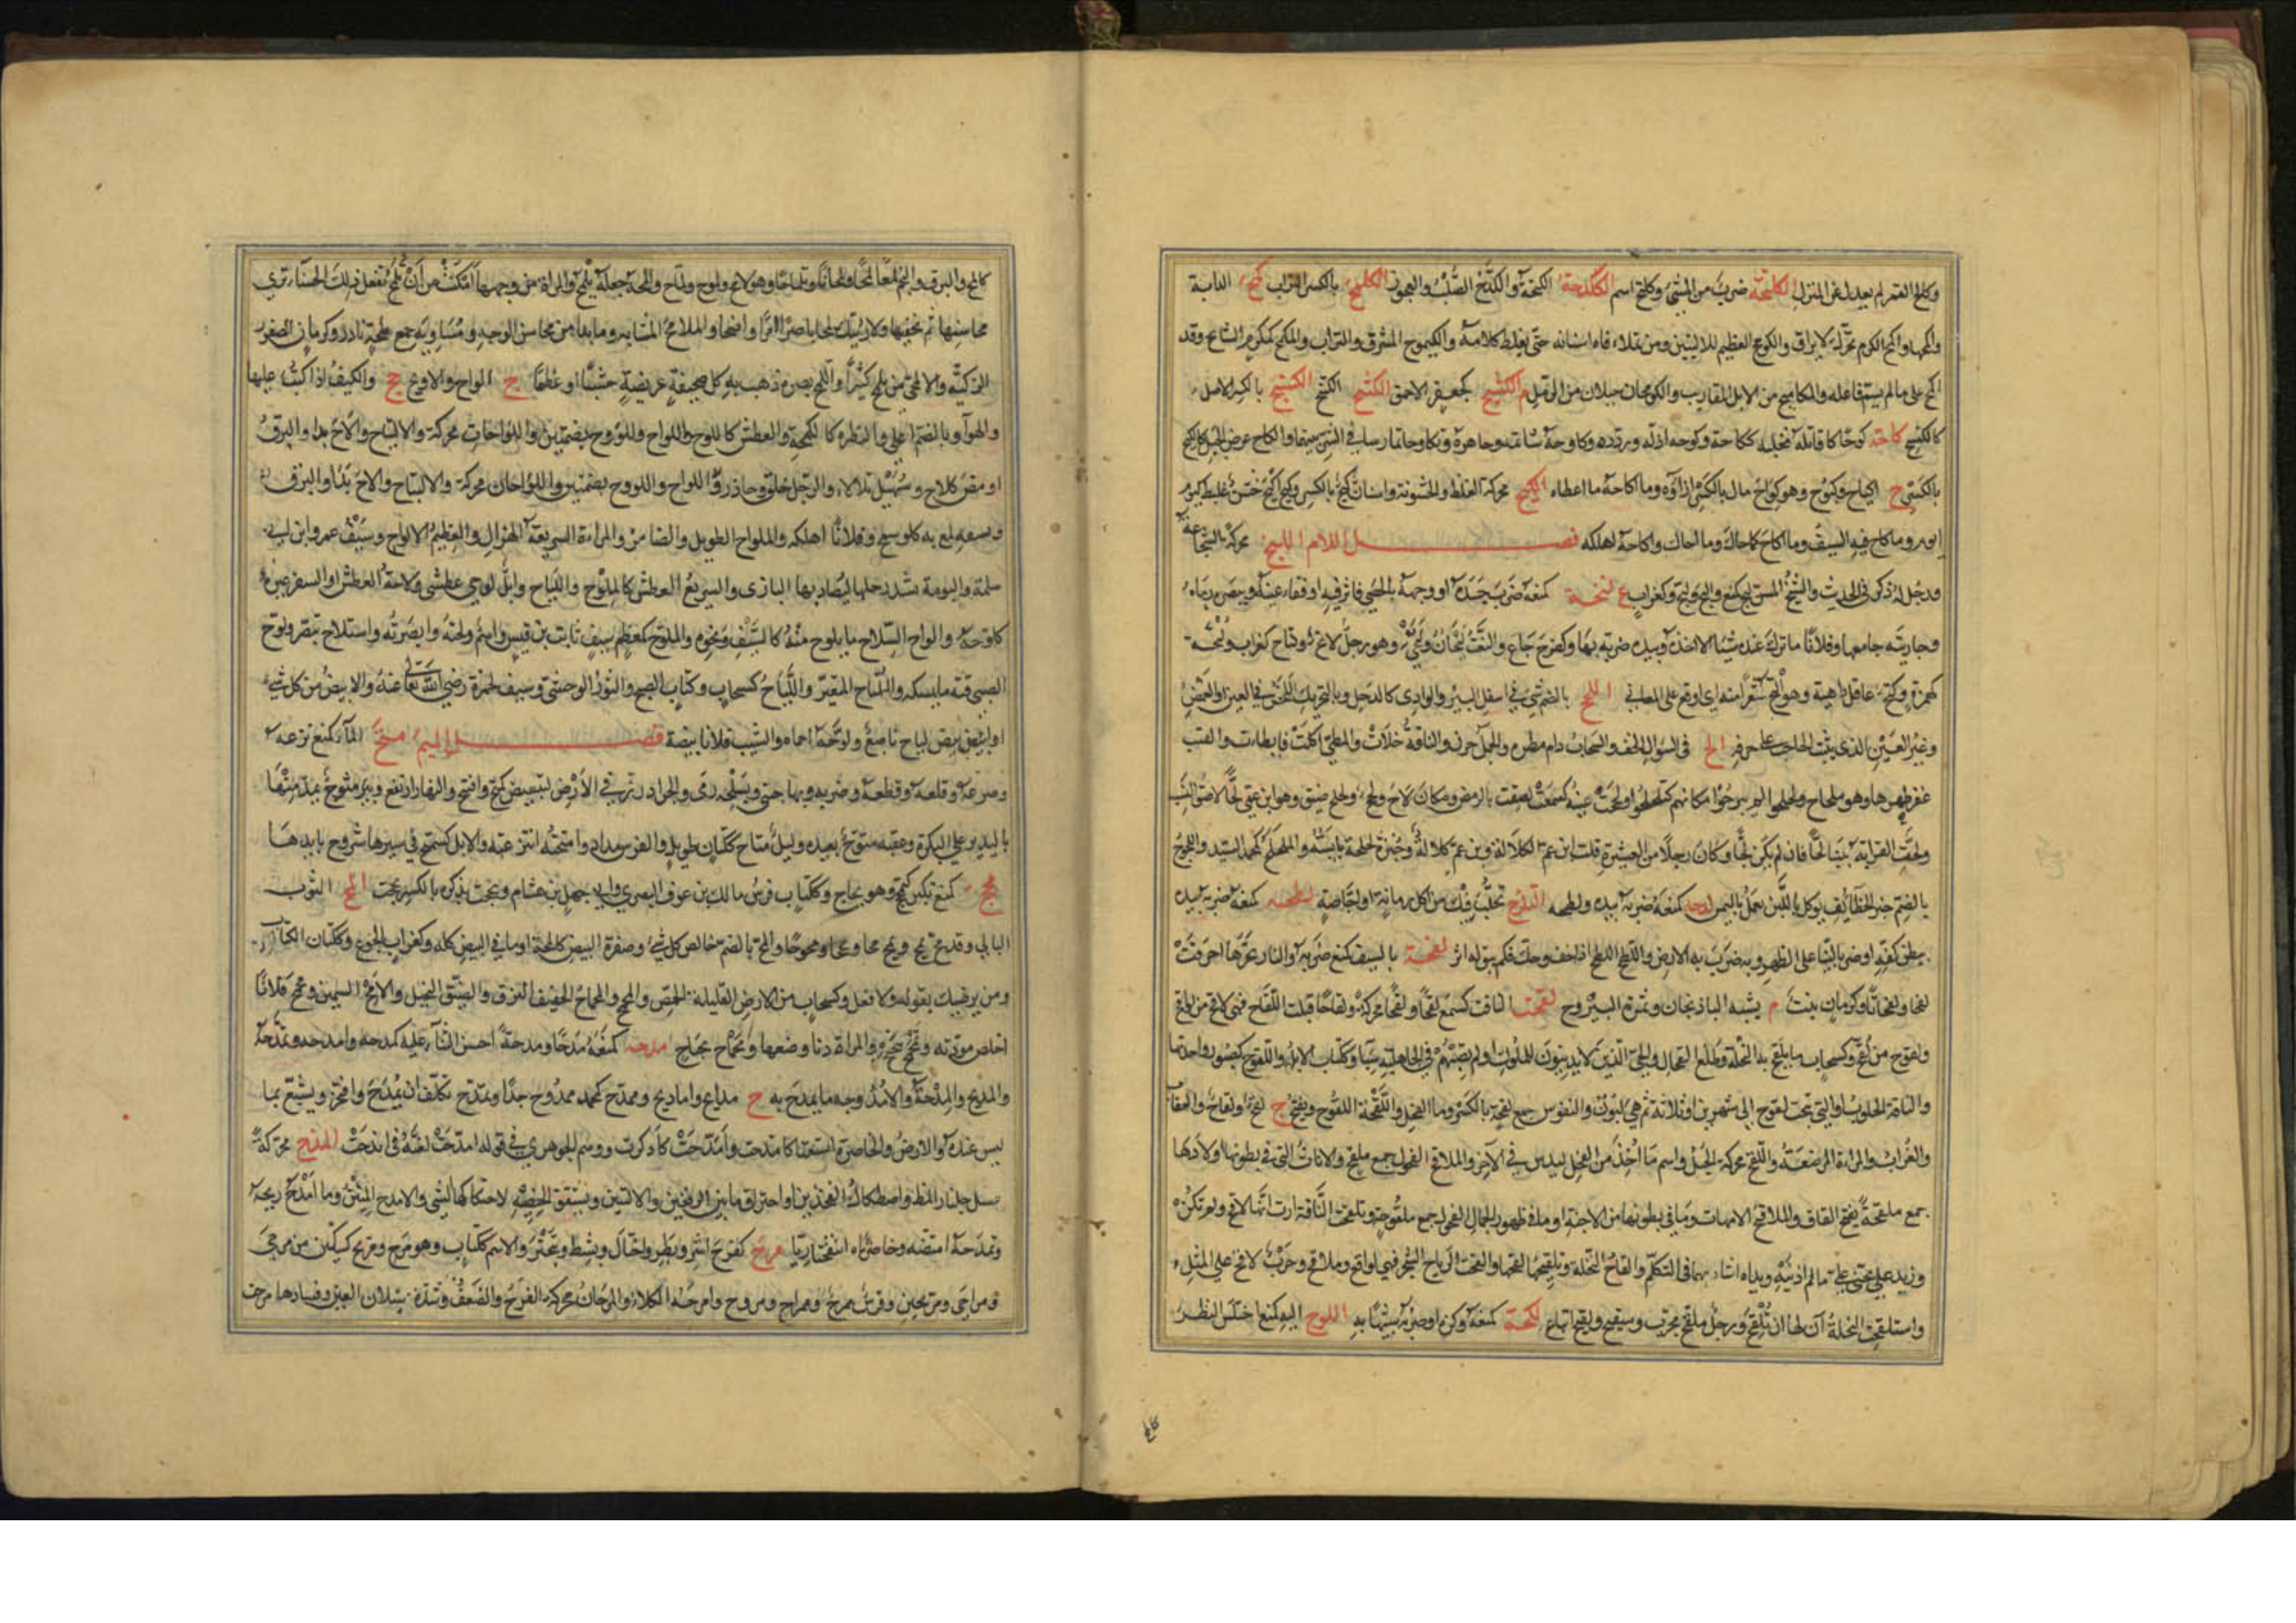 وكالح القمر لم يعدل عن المنزل الكلتحة ضرب من المشي وكلتح اسم الكلدحة الكلتحة والكلدح الصلب والعجوز الكلمح بالكسر التراب كمح الدابة
واكمحها واكمح الكرم تحرك للايراق والكومح العظيم الاليتين ومن تملاء فاه اسنانه حتى يغلظ كلامه والكيموح المشرف والتراب والمكمح كمكرم الشامخ وقد
اكمح على ما لم يسم فاعله والمكاميح من الابل المقارب والكومحان حبلان من الرمل م الكنتح كجعفر الاحمق الكنثح الكنتح الكنسح بالكسر الاصل
كالكنسيح كاحه كوحا قاتله فغلبه ككاحه وكوحه اذله وردده وكاوحه شاتمه وجاهره وتكاوحا تمارسا في الشر بينهما والكاح عرض الجبل كالكيح
بالكسر ج اكياح وكيوح وهو كواح مال بالكسر ازاؤه وما اكاحه ما اعطاه الكيح محركة الغلظ والخشونة واسنان كيح بالكسر وكيح اكيح خشن غليظ كيوم
ايوم وما كاح فيه السيف وما اكاح كاحاك وما احاك واكاحه اهلكه فصل اللام اللبح محركة الشجاعة
ورجل له ذكر في الحديث والشيخ المسن لبح كمنع والبح ولبح وكغراب ع لتحه كمنعه ضرب جسده او وجهه بالحصى فاثر فيه او فقاء عينه وببصره رماه
وجاريته جامعها وفلانا ما ترك عنده شيئا الا اخذه وبيده ضربه بها وكفرح جاع والنعت لتحان ولتحى وهو رجل لاتح ولتاح كغراب ولتحة
كهمزة وكتف عاقل داهية وهو التح شعرا منه اي اوقع على المعاني اللجح بالضم شيء في اسفل البئر والوادي كالدحل وبالتحريك اللخص في العين والغمص
وغير العين الذي ينبت الحاجب على حرفه الح في السؤال الحف والسحاب دام مطره والجمل حرن والناقة خلات والمطي كلت فابطات والقتب
عقر ظهرها وهو ملحاح ولحلحوا لم يبرحوا مكانهم كتلحلحوا ولحت عينه كسمعت لصقت بالرمص ومكان لاح ولحح ولحلح ضيق وهو ابن عمي لحا لاصق النسب
ولحت القرابة بيننا لحا فان لم يكن لحا وكان رجلا من العشيرة قلت ابن عم الكلالة وابن عم كلالة وخبزة لحلحة يابسة والملحلح كمحمد السيد واللحوح
بالضم خبز القطائف يوكل باللبن يعمل باليمن لدحه كمنعه ضربه بيده ولطمه التلزح تحلب فيك من اكل رمانة او اجاصة لطحه كمنعه ضربه بيده
ببطن كفه او ضربا لينا على الظهر وبه ضرب به الارض واللطح كاللطخ اذا جف وحك فلم يبق له اثر لفحه بالسيف كمنع ضربه والنار بحرها احرقت
لفحا ولفحانا وكرمان نبت م يشبه الباذنجان وثمرة اليبروح لقحت الناقة كسمع لقحا ولقحا محركة ولقاحا قبلت اللقاح فهي لاقح من لواقح
ولقوح من لقح وكسحاب ما يلقح به النخلة وطلع الفحال والحي الذين لا يدينون للملوك او لم يصبهم في الجاهلية سبا وككتاب الابل واللقوح كصبور واحدتها
والناقة الحلوب او التي نتجت لقوح الى شهرين او ثلاثة ثم هي لبون والنفوس جمع لقحة بالكسر وماء الفحل واللقحة اللقوح ويفتح ج لقح ولقاح والعقاب
والغراب والمراءة المرضعة واللقح محركة الحبل واسم ما اخذ من الفحل ليدس في الاخر والملاقح الفحول جمع ملقح والاناث التي في بطونها اولادها
جمع ملقحة بفتح القاف والملاقيح الامهات وما في بطونها من الاجنة او ما في ظهور الجمال الفحول جمع ملقوحة وتلقحت الناقة ارت انها لاقح ولم تكن
وزيد علي تجنى علي ما لم اذنبه ويداه اشار بهما في التكلم والقاح النخلة وتلقيحها لقحها والقحت الرياح الشجر فهي لواقح وملاقح وحرب لاقح على المثل
واستلقحت النخلة آن لها ان تلقح ورجل ملقح مجرب وسبقيح لقيح اتباع لكحه كمنعه وكزه او ضربه شبيها به اللوح اليه كمنع اختلس النظر
كالمح
كالمح والبرق والنجم لمعا لمحا ولمحانا وتلماحا وهو لامح ولموح ولماح والمحه جعله يلمح والمراة من وجهها امكنت من ان تلمح تفعل ذلك الحسناء تري
محاسنها ثم تخفيها ولارينك لمحا باصرا امرا واضحا والملامح المشابه وما بدا من محاسن الوجه ومساويه جمع لمحة نادر وكرمان الصقور
الزكية والالمحي من يلمح كثيرا والتمح بصره ذهب به كل صحيفة عريضة خشبا او عظما ج الواح والاويح جج والكتف اذا كتب عليها
والهوآء وبالضم اعلى والنظرة كاللمحة والعطش كاللوح واللواح واللووح بضمتين واللواحات محركة والالتياح والاح بدا والبرق
اومض كلاح وسهيل تلالاء والرجل خاف وحاذر واللواح واللووح بضمتين واللواحان محركة والالتياح والاح بدا والبرق
وبسيفه لمع به كلوح وفلانا اهلكه والملواح الطويل والضامر والمراة السريعة الهزال والعظيم الالواح وسيف عمرو ابن ابي
سلمة والبومة تشد رجلها ليصاد بها البازي والسريع العطش كالملوح والملياح وابل لوحى عطشى ولاحه العطش او السفر غيره
كلوحه والواح السلاح ما يلوح منه كالسيف ونحوه والملوح كمعظم سيف ثابت بن قيس واسم ولحته ابصرته واستلاح تبصر ولوح
الصبي قته ما يمسكه والملتاح المتغير واللياح كسحاب وكتاب الصبح والثور الوحشي وسيف لحمزة رضي الله تعالى عنه والابيض من كل شيء
وابيض لياح ناصع ولوحه احماه والشيب فلانا بيضه فصل الميم متح الماء كمنع نزعه
وصرعه وقلعه وقطعه وضربه وبها حبق وبسلحه رمى والجراد رز في الارض لتبيض كمتح وامتح والنهار ارتفع وبئر متوح يمد منها
باليدين على البكرة وعقبة متوح بعيدة وليل متاح ككتان طويل والفرس مداد وامتحته انتزعته والابل تتمتح في سيرها تتروح بايديها
مجح كمنع تكبر كتمجح وهو مجاح وككتاب فرس مالك بن عوف النصري وابي جهل بن هشام ومجحت بذكره بالكسر بجحت المح الثوب
البالي وقد مح يمح ويمح محا ومححا ومحوحا والمح بالضم خالص كل شيء وصفرة البيض كالمحة او ما في البيض كله وكغراب الجوع وككتان الكذاب
ومن يرضيك بقوله ولا فعل وكسحاب من الارض القليلة الحمض والمحمح والمحماح الخفيف النزق والضيق البخيل والامح السمين ومحمح فلانا
اخلص مودته وتمحمح تبحبح والمراة دنا وضعها ومحماح بحباح مدحه كمنعه مدحا ومدحة احسن الثناء عليه كمدحه وامتدحه وتمدحه
والمديح والمدحة والامدوحة ما يمدح به ج مدايح واماديح وممدح كمحمد ممدوح جدا وتمدح تكلف ان يمدح وافتخر وتشبع بما
ليس عنده والارض والخاصرة اتسعتا كامتدحت وامدحت كادكرت ووهم الجوهري في قوله امدحت لغة في اندحت المذح محركة
عسل جلنار المظ واصطكاك الفخذين او احتراق ما بين الرفغين والاليتين وتشقق الخصية لاحتكاكها بشيء والامذح المنتن وما امذح ريحه
وتمذحه امتصه وخاصرتاه انتفختا ريا مرح كفرح اشر وبطر واختال ونشط وتبختر والاسم ككتاب وهو مرح ومريح كسكين من مرحى
ومراحى ومريحين وفرس ممرح وممراح ومروح وامرحه الكلاء والمرحان محركة الفرح والضعف وشدة سيلان العين وفسادها مرحت